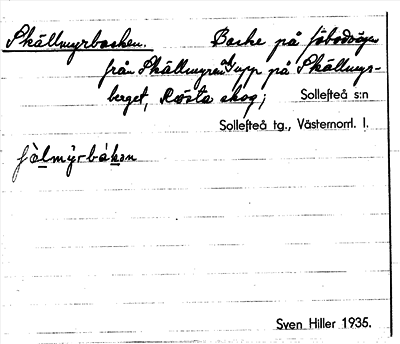 Skällmyrbacken. Backe på fäbodvägen
från Skällmyran upp på Skällmyr-
berget, Rösta skog; Sollefteå s:n
Sollefteå tg., Västernorrl. l.
Sven Hiller 1935.